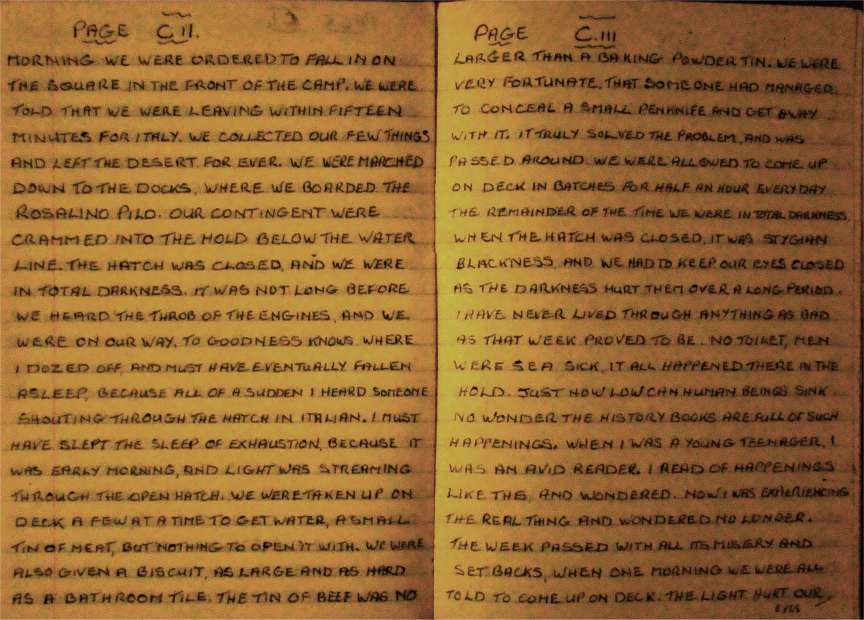 PAGE C.11.
MORNING WE WERE ORDERED TO FALL IN ON
THE SQUARE IN THE FRONT OF THE CAMP. WE WERE
TOLD THAT WE WERE LEAVING WITHIN FIFTEEN
MINUTES FOR ITALY. WE COLLECTED OUR FEW THINGS
AND LEFT THE DESERT FOR EVER. WE WERE MARCHED
DOWN TO THE DOCKS, WHERE WE BOARDED THE
ROSALINO PILO. OUR CONTINGENT WERE
CRAMMED INTO THE HOLD BELOW THE WATER
LINE. THE HATCH WAS CLOSED, AND WE WERE
IN TOTAL DARKNESS. IT WAS NOT LONG BEFORE
WE HEARD THE THROB OF THE ENGINES, AND WE
WERE ON OUR WAY. TO GOODNESS KNOWS WHERE
I DOZED OFF, AND MUST HAVE EVENTUALLY FALLEN
ASLEEP, BECAUSE ALL OF A SUDDEN I HEARD SOMEONE
SHOUTING THROUGH THE HATCH IN ITALIAN. I MUST
HAVE SLEPT THE SLEEP OF EXHAUSTION, BECAUSE IT
WAS EARLY MORNING, AND LIGHT WAS STREAMING
THROUGH THE OPEN HATCH. WE WERE TAKEN UP ON
DECK A FEW AT A TIME TO GET WATER, A SMALL
TIN OF MEAT, BUT NOTHING TO OPEN IT WITH. WE WERE
ALSO GIVEN A BISCUIT, AS LARGE AND AS HARD
AS A BATHROOM TILE. THE TIN OF BEEF WAS NO
PAGE C.111
LARGER THAN A BAKING POWDER TIN. WE WERE
VERY FORTUNATE. THAT SOMEONE HAD MANAGED.
TO CONCEAL A SMALL PENKNIFE AND GET AWAY
WITH IT. IT TRULY SOLVED THE PROBLEM, AND WAS
PASSED AROUND. WE WERE ALLOWED TO COME UP
ON DECK IN BATCHES FOR HALF AN HOUR EVERYDAY
THE REMAINDER OF THE TIME WE WERE IN TOTAL DARKNESS,
WHEN THE HATCH WAS CLOSED, IT WAS STYGIAN
BLACKNESS, AND WE HAD TO KEEP OUR EYES CLOSED
AS THE DARKNESS HURT THEM OVER A LONG PERIOD.
I HAVE NEVER LIVED THROUGH ANYTHING AS BAD
AS THAT WEEK PROVED TO BE. NO TOILET, MEN
WERE SEA SICK, IT ALL HAPPENED THERE IN THE
HOLD. JUST HOW LOW CAN HUMAN BEINGS SINK
NO WONDER THE HISTORY BOOKS ARE FULL OF SUCH
HAPPENINGS. WHEN I WAS A YOUNG TEENAGER, I
WAS AN AVID READER. I READ OF HAPPENINGS
LIKE THIS, AND WONDERED. NOW I WAS EXPERIENCING
THE REAL THING AND WONDERED NO LONGER.
THE WEEK PASSED WITH ALL ITS MISERY AND
SET BACKS, WHEN ONE MORNING WE WERE ALL
TOLD TO COME UP ON DECK. THE LIGHT HURT OUR